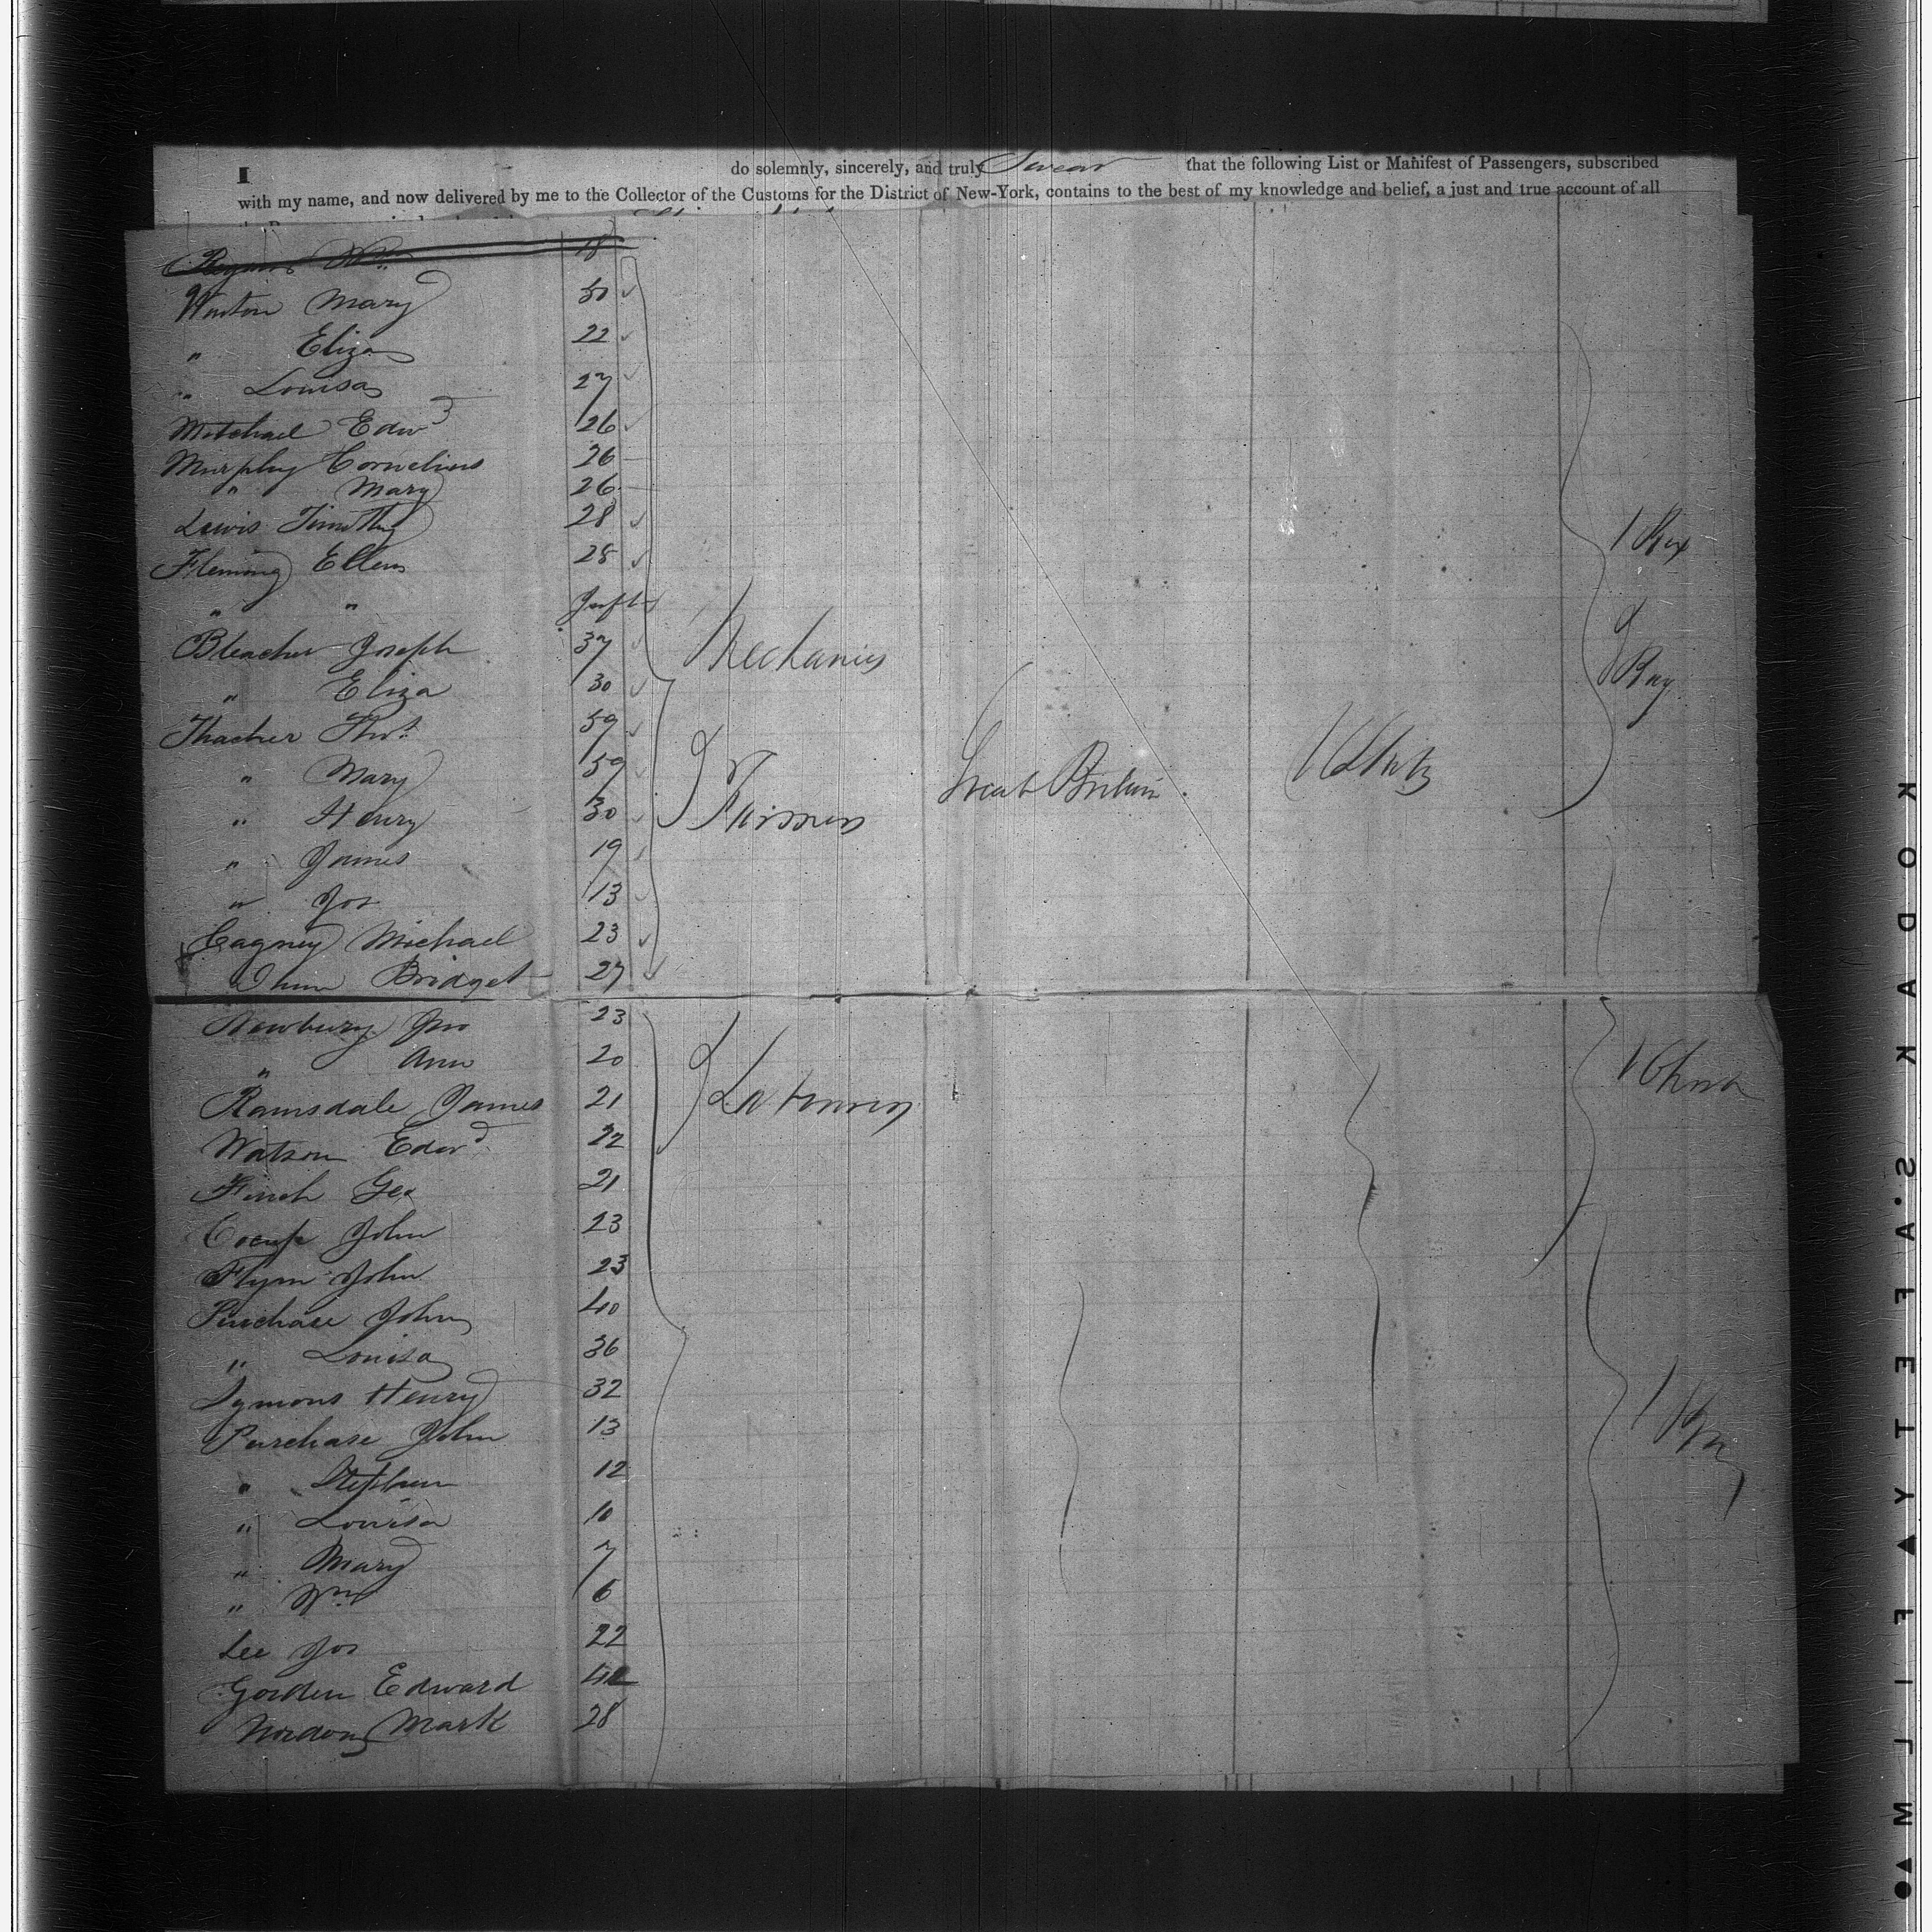 I do solemnly, sincerely, and truly Swear that the following List or Manifest of Passengers, subscribed
with my name, and now delivered by me to the Collector of the Customs for the District of New-York, contains to the best of my knowledge and belief, a just and true account of all
Wm 18
Mary
" Eliza 22
" Louisa 27
Mitchael Edwd 26
Murphy Cornelius 26
" Mary 26
Lewis Timothy 28
Fleming Ellen 28
" " Inft
Bleacher Joseph 37
" Eliza 30
Thacher Thos 59
" Mary 59
" Henry 30
" James 19
" Jos 13
Cagney Michael 23
Bridget 27
Mechanics
Farmers
Great Britain
U States
1 Box
&
1 Bag
Newbury Jno 23
" Ann 20
Ramsdale James 21
Watson Edwd 22
Finch Geo 21
John 23
Flynn John 23
Purchase John 40
" Louisa 36
Symons Henry 32
Purchase John 13
" Stephen 12
" Louisa 10
" Mary 7
" Wm 6
Lee Jos 22
Gorden Edward
Mark 28
Laborers
1 Chest
KODAK S'AFETY FILM